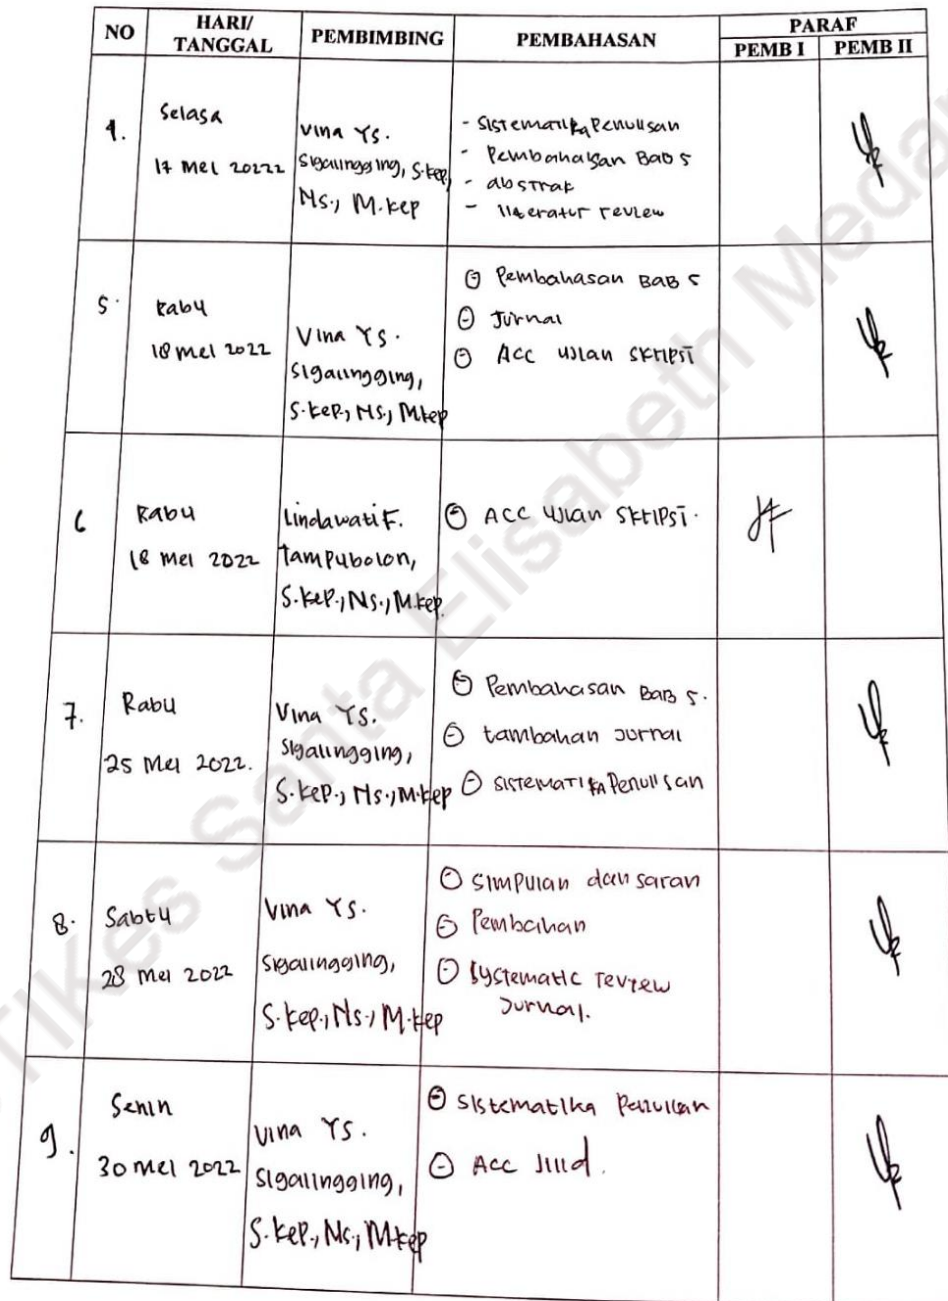 NO HARI/ TANGGAL PEMBIMBING PEMBAHASAN PARAF
PEMB I PEMB II
4. Selasa
17 Mei 20222
Vina YS.
Sigalingging, S.Kep,
Ns., M.Kep
- Sistematika Penulisan
- Pembahasan Bab 5
- abstrak
- literatur review
5. Rabu
18 Mei 2022
Vina YS.
Sigalingging,
S.Kep., Ns., M.Kep
Pembahasan BAB 5
Jurnal
ACC Ujian SKRIPSI
6 Rabu
18 Mei 2022
Lindawati F.
Tampubolon,
S.Kep., Ns., M.Kep.
ACC Ujian SKRIPSI.
7. Rabu
25 Mei 2022.
Vina YS.
Sigalingging,
S.Kep., Ns., M.Kep
Pembahasan BAB 5.
tambahan Jurnal
Sistematika Penulisan
8. Sabtu
28 Mei 2022
Vina YS.
Sigalingging,
S.Kep., Ns., M.Kep
Simpulan dan saran
Pembahan
Systematic review
Jurnal.
9. Senin
30 Mei 2022
Vina YS.
Sigalingging,
S.Kep., Ns., M.Kep
Sistematika Penulisan
Acc Jilid.
STIKes Santa Elisabeth Medan